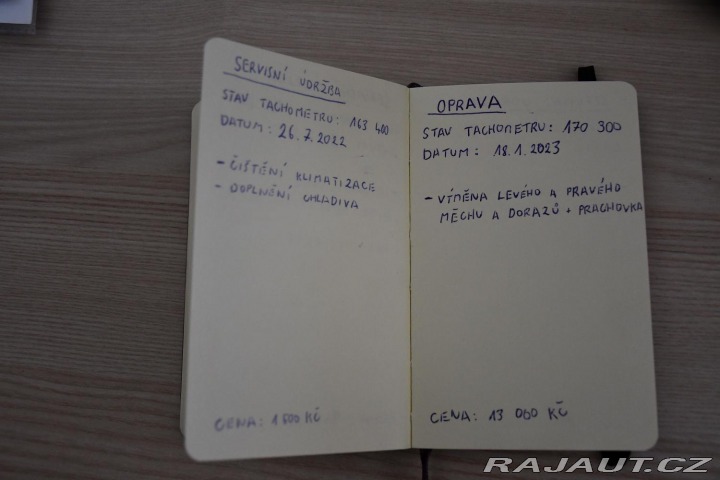 SERVISNÍ ÚDRŽBA
STAV TACHOMETRU: 163 400
DATUM: 26.7.2022
- ČIŠTĚNÍ KLIMATIZACE
- DOPLNĚNÍ CHLADIVA
CENA: 1 500 KČ
OPRAVA
STAV TACHOMETRU: 170 300
DATUM: 18.1.2023
- VÍMĚNA LEVÉHO A PRAVÉHO
MĚCHU A DORAZŮ + PRACHOVKA
CENA: 13 000 KČ
RAJAUT.CZ